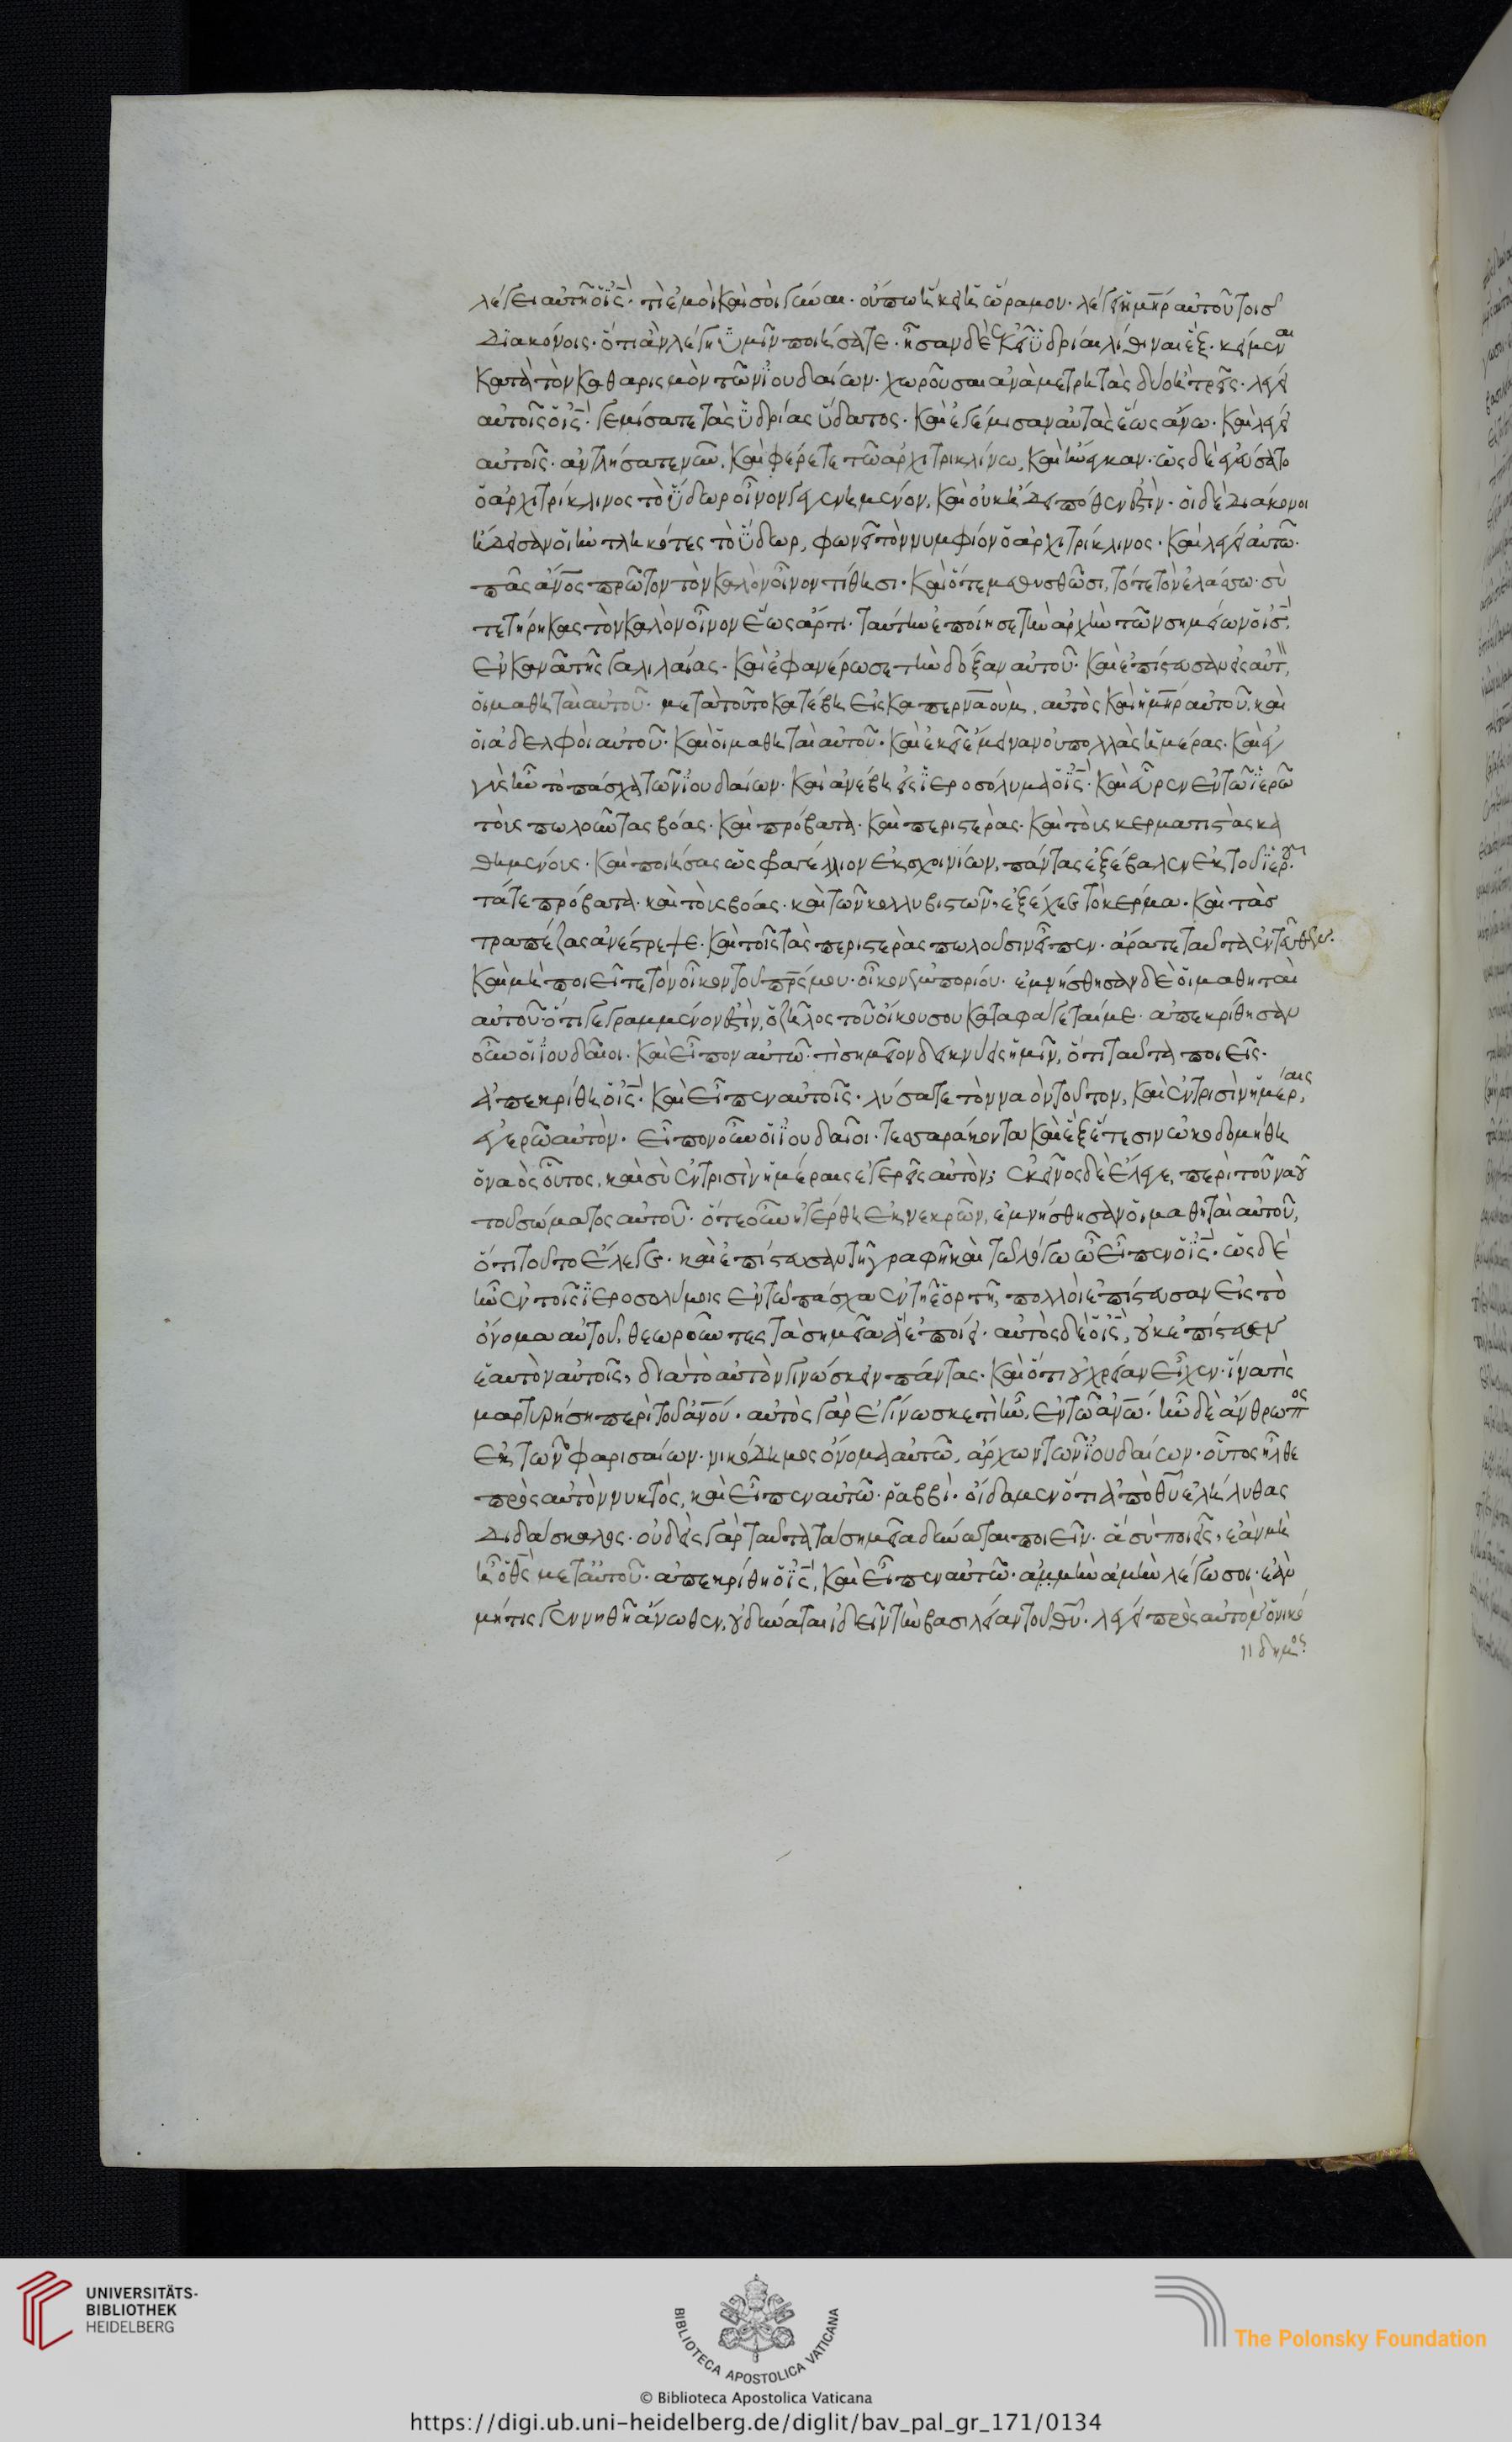 λέγει αὐτῆ ὁ ις̅· τί ἐμοὶ καὶ σοὶ γύναι· οὔπω ἥκει ἡ ὥρα μου· λέγει ἡ μη̅ρ αὐτοῦ τοῖσ
διακόνοις· ὅτι ἀν λέγη ὑμῖν ποιήσατε· ἦσαν δὲ ἐκεῖ ὑδρίαι λίθιναι ἓξ· κείμεναι
κατὰ τὸν καθαρισμὸν τῶν ἰουδαίων· χωροῦσαι ἀνὰ μετρητὰς δύο ἢ τρεῖς· λέγει
αὐτοῖς ὁ ις̅· γεμίσατε τὰς ὑδρίας ὕδατος· καὶ ἐγέμισαν αὐτὰς ἕως ἄνω· καὶ λέγει
αὐτοῖς· ἀντλήσατε νῦν, καὶ φέρετε τῶ ἀρχιτρικλίνω, καὶ ἤνεγκαν· ὡς δὲ ἐγεύσατο
ὁ ἀρχιτρίκλινος τὸ ὕδωρ οἶνον γεγενημένον, καὶ οὐκ ἤδει πόθεν ἐστὶν· οἱ δὲ διάκονοι
ἤδεισαν οἱ ἠντληκότες τὸ ὕδωρ, φωνεῖ τὸν νυμφίον ὁ ἀρχιτρίκλινος· καὶ λέγει αὐτῶ·
πᾶς ἄνο̅ς πρῶτον τὸν καλὸν οἶνον τίθησι· καὶ ὅτε μεθυσθῶσι, τότε τὸν ἐλάσσω· σὺ
τετήρηκας τὸν καλὸν οἶνον ἕως ἄρτι· ταύτην ἐποίησε τὴν ἀρχὴν τῶν σημείων ὁ ις̅,
ἐν κανᾶ τῆς γαλιλαίας· καὶ ἐφανέρωσε τὴν δόξαν αὐτοῦ· καὶ ἐπίστευσαν εἰς αὐτ
οἱ μαθηταὶ αὐτοῦ· μετὰ τοῦτο κατέβη εἰς καπερναοὺμ, αὐτὸς καὶ ἡ μη̅ρ αὐτοῦ, καὶ
οἱ ἀδελφοὶ αὐτοῦ· καὶ οἱ μαθηταὶ αὐτοῦ· καὶ ἐκεῖ ἔμειναν οὐ πολλὰς ἡμέρας· καὶ ἐγ
γὺς ἦν τὸ πάσχα τῶν ἰουδαίων· καὶ ἀνέβη εἰς ἱεροσόλυμα ὁ ις̅· καὶ εὗρεν ἐν τῶ ἱερῶ
τοὺς πωλοῦντας βόας· καὶ πρόβατα· καὶ περιστερὰς· καὶ τοὺς κερματιστὰς κα
θημένους· καὶ ποιήσας ὡς φαγέλλιον ἐκ σχοινίων, πάντας ἐξέβαλεν ἐκ τοῦ ἱεροῦ·
τά τε πρόβατα· καὶ τοὺς βόας· καὶ τῶν κολλυβιστῶν, ἐξέχεε τὸ κέρμα· καὶ τὰσ
τραπέζας ἀνέστρεψε· καὶ τοῖς τὰς περιστερὰς πωλοῦσιν εἶπεν· ἄρατε ταῦτα ἐντεῦθεν·
καὶ μὴ ποιεῖτε τὸν οἶκον τοῦ πρ̅ς μου· οἶκον ἐμπορίου· ἐμνήσθησαν δὲ οἱ μαθηταὶ
αὐτοῦ· ὅτι γεγραμμένον ἐστὶν, ὁ ζῆλος τοῦ οἴκου σου καταφάγεταί με· ἀπεκρίθησαν
οὖν οἱ ἰουδαῖοι· καὶ εἶπον αὐτῶ· τί σημεῖον δεικνύεις ἡμῖν, ὅτι ταῦτα ποιεῖς·
ἀπεκρίθη ὁ ις̅· καὶ εἶπεν αὐτοῖς· λύσατε τὸν ναὸν τοῦτον, καὶ ἐν τρισὶν ἡμέραις,
ἐγερῶ αὐτὸν· εἶπον οὖν οἱ ἰουδαῖοι· τεσσαράκοντα καὶ ἓξ ἔτεσιν ὠκοδομήθη
ὁ ναὸς οὗτος, καὶ σὺ ἐν τρισὶν ἡμέραις ἐγερεῖς αὐτὸν; ἐκεῖνος δὲ ἔλεγε, περὶ τοῦ ναοῦ
τοῦ σώματος αὐτοῦ· ὅτε οὖν ἠγέρθη ἐκ νεκρῶν, ἐμνήσθησαν οἱ μαθηταὶ αὐτοῦ,
ὅτι τοῦτο ἔλεγε· καὶ ἐπίστευσαν τῆ γραφῆ καὶ τῶ λόγω ὧ εἶπεν ὁ ις̅· ὡς δὲ
ἦν ἐν τοῖς ἱεροσολύμοις ἐν τῶ πάσχα ἐν τῆ ἑορτῆ, πολλοὶ ἐπίστευσαν εἰς τὸ
ὄνομα αὐτοῦ, θεωροῦντες τὰ σημεῖα ἃ ἐποίει· αὐτὸς δὲ ὁ ις̅, οὐκ ἐπίστευεν
ἑαυτὸν αὐτοῖς, διὰ τὸ αὐτὸν γινώσκειν πάντας· καὶ ὅτι οὐ χρείαν εἶχεν· ἵνα τὶς
μαρτυρήση περὶ τοῦ ἀνο̅ύ· αὐτὸς γὰρ ἐγίνωσκε τί ἦν, ἐν τῶ ἀνω̅· ἦν δὲ ἄνθρωπος
ἐκ τῶν φαρισαίων· νικόδημος ὄνομα αὐτῶ, ἄρχων τῶν ἰουδαίων· οὗτος ἦλθε
πρὸς αὐτὸν νυκτὸς, καὶ εἶπεν αὐτῶ· ῥαββὶ· οἴδαμεν ὅτι ἀπὸ θυ̅ ἐλήλυθας
διδάσκαλος· οὐδεὶς γὰρ ταῦτα τὰ σημεῖα δύναται ποιεῖν· ἃ σὺ ποιεῖς, ἐὰν μὴ
ἦ ὁ θς̅ μετ' αὐτοῦ· ἀπεκρίθη ὁ ις̅, καὶ εἶπεν αὐτῶ· ἀμμὴν ἀμὴν λέγω σοι· ἐὰν
μή τις γεννηθῆ ἄνωθεν, οὐ δύναται ἰδεῖν τὴν βασιλείαν τοῦ θυ̅· λέγει πρὸς αὐτὸν ὁ νικό
δημος
UNIVERSITÄTS-
BIBLIOTHEK
HEIDELBERG
BIBLIOTECA APOSTOLICA VATICANA
The Polonsky Foundation
© Biblioteca Apostolica Vaticana
https://digi.ub.uni-heidelberg.de/diglit/bav_pal_gr_171/0134